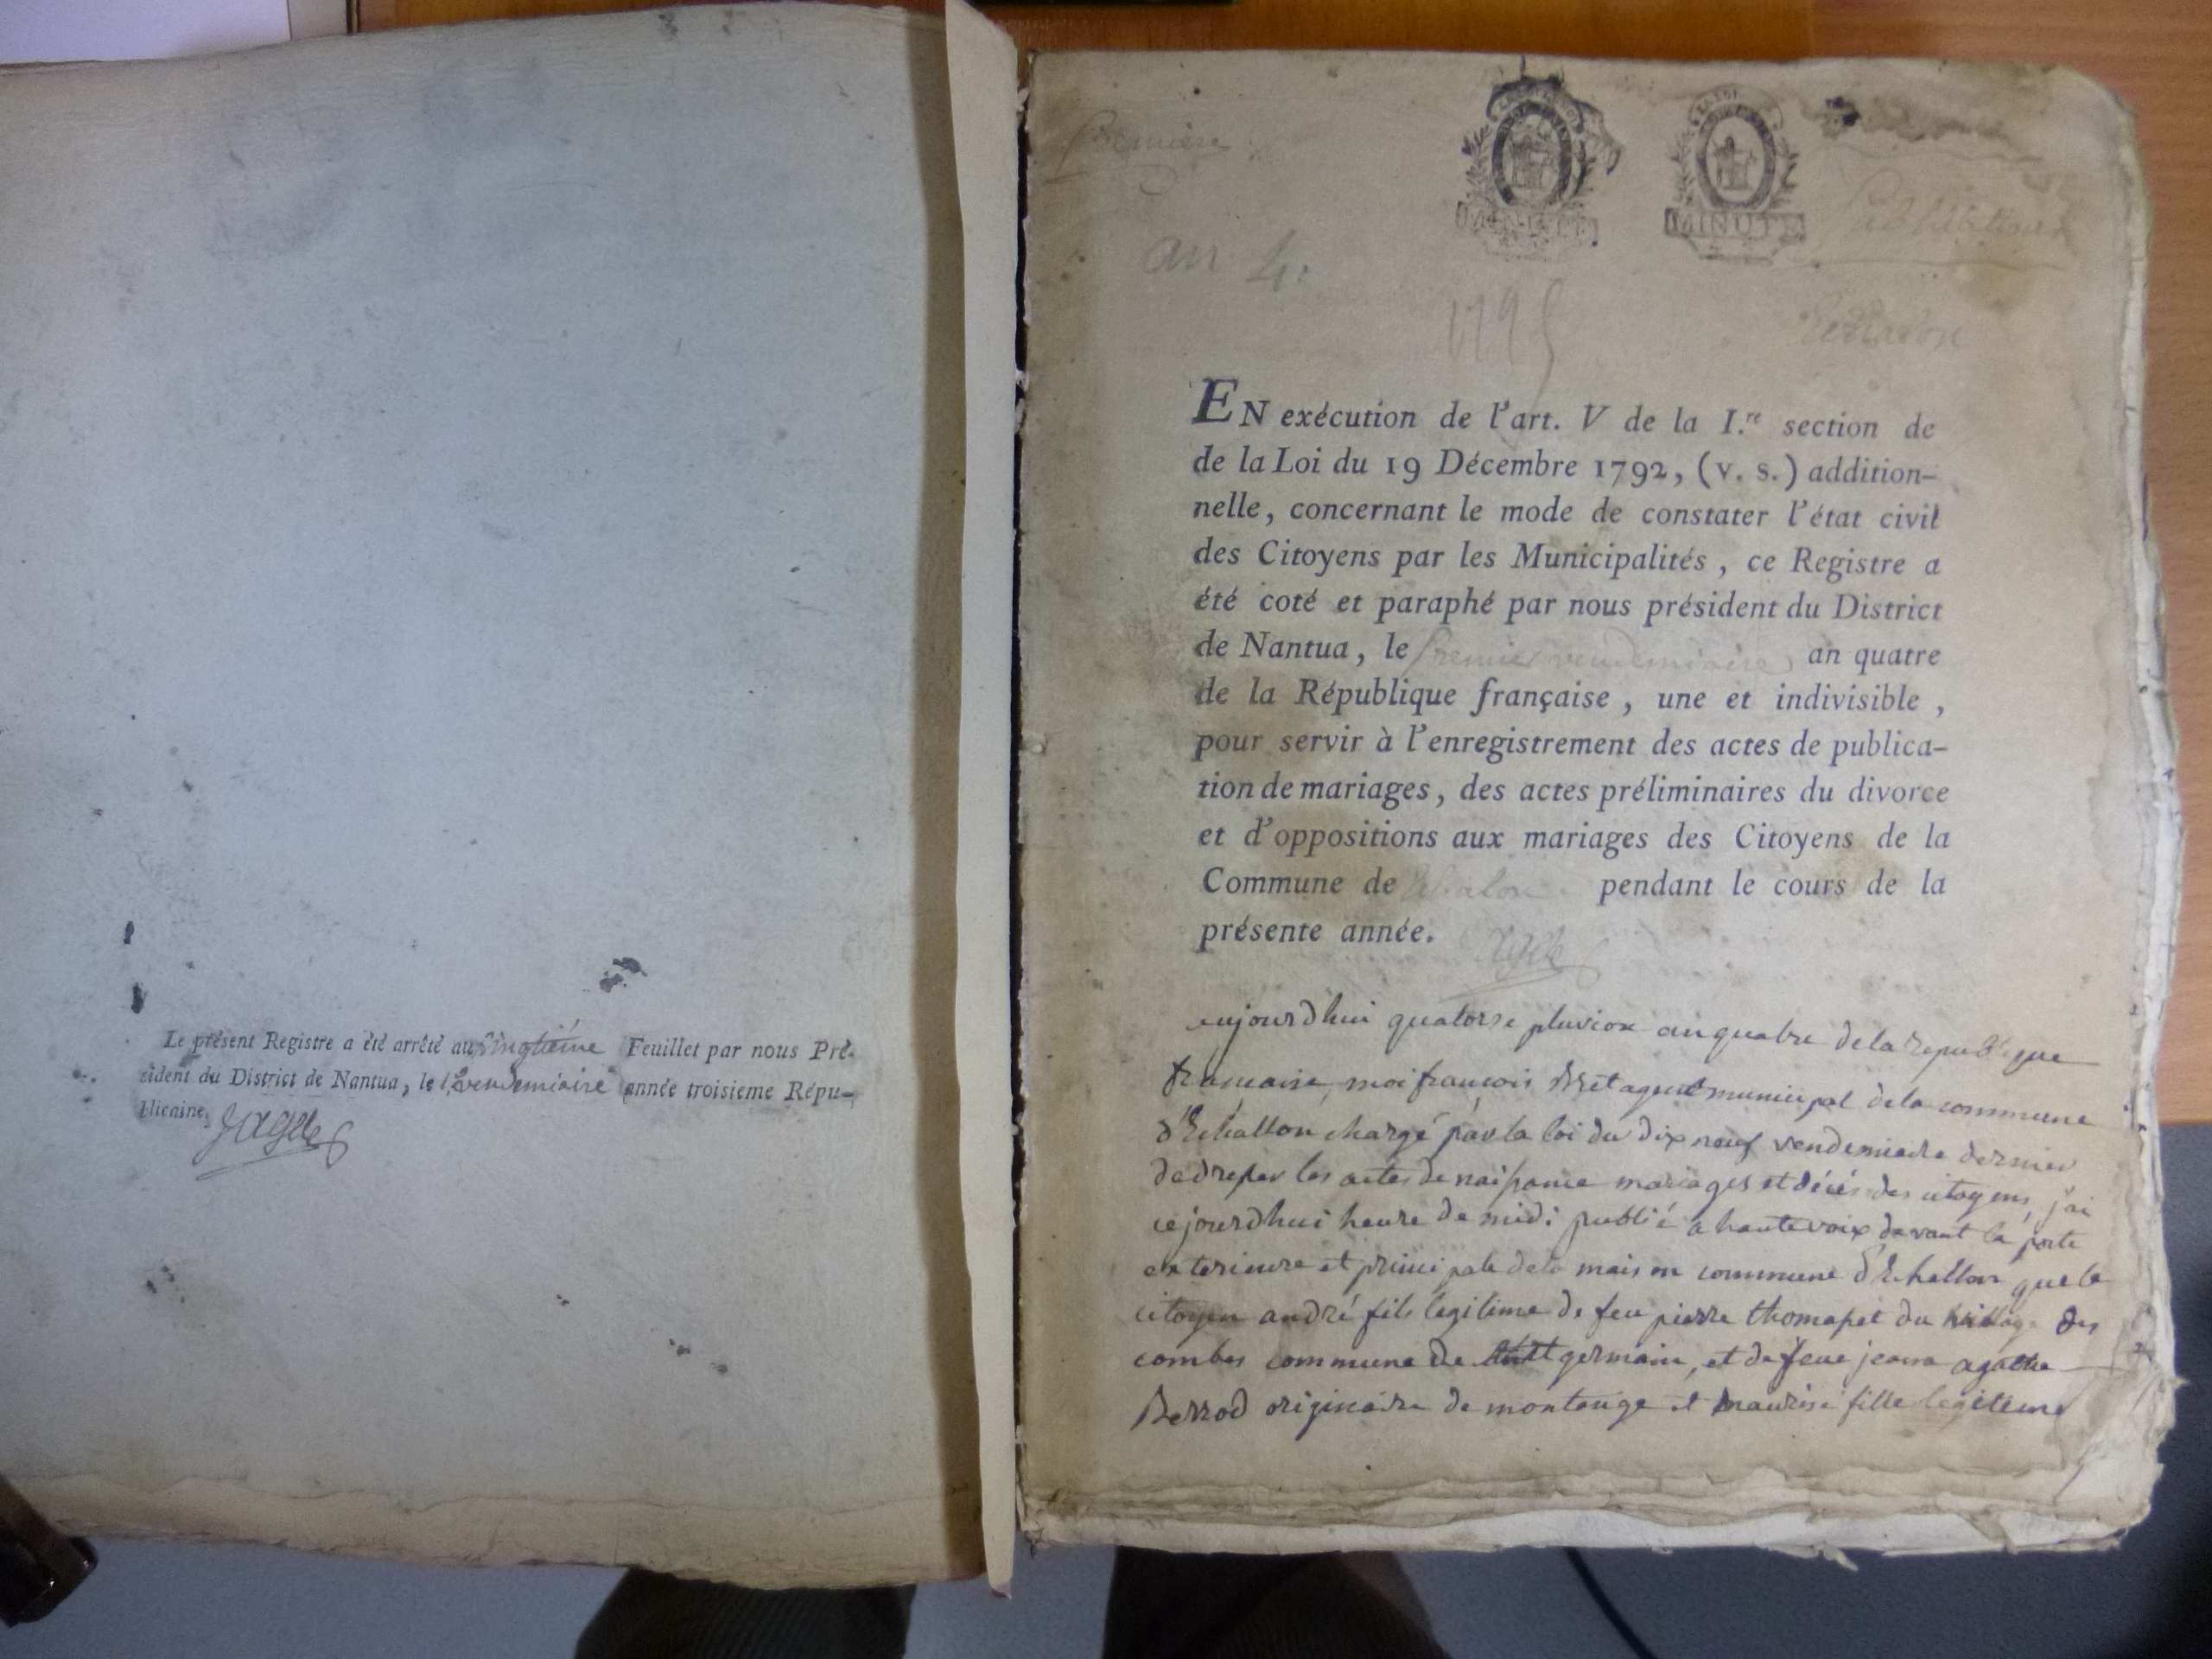 Le présent Registre a été arrêté au Cinqtiéme Feuillet par nous Pré-
sident du District de Nantua, le 1er Vendemiaire année troisieme Répu-
blicaine.
Premiere
MINUTE
MINUTE
an 4.
1795
EN exécution de l'art. V de la I.re section de
de la Loi du 19 Décembre 1792, (v. s.) addition-
nelle, concernant le mode de constater l'état civil
des Citoyens par les Municipalités, ce Registre a
été coté et paraphé par nous président du District
de Nantua, le Premier vendemiaire an quatre
de la République française, une et indivisible,
pour servir à l'enregistrement des actes de publica-
tion de mariages, des actes préliminaires du divorce
et d'oppositions aux mariages des Citoyens de la
Commune de Echalon pendant le cours de la
présente année.
aujourdhui quatorze pluviose an quatre de la republique
francaise, moi francois agent municipal de la commune
d'Echallon chargé par la loi du dix neuf vendemiaire dernier
de dresser les actes de naissance mariages et décés des citoyens, j'ai
cejourdhui heure de midi publié a haute voix devant la porte
exterieure et principale de la maison commune d'Echallon que le
citoyen andré fils legitime de feu pierre thomasset du village des
combes commune de germain, et de feue jeanne agathe
Berrod originaire de montange et fille legitime